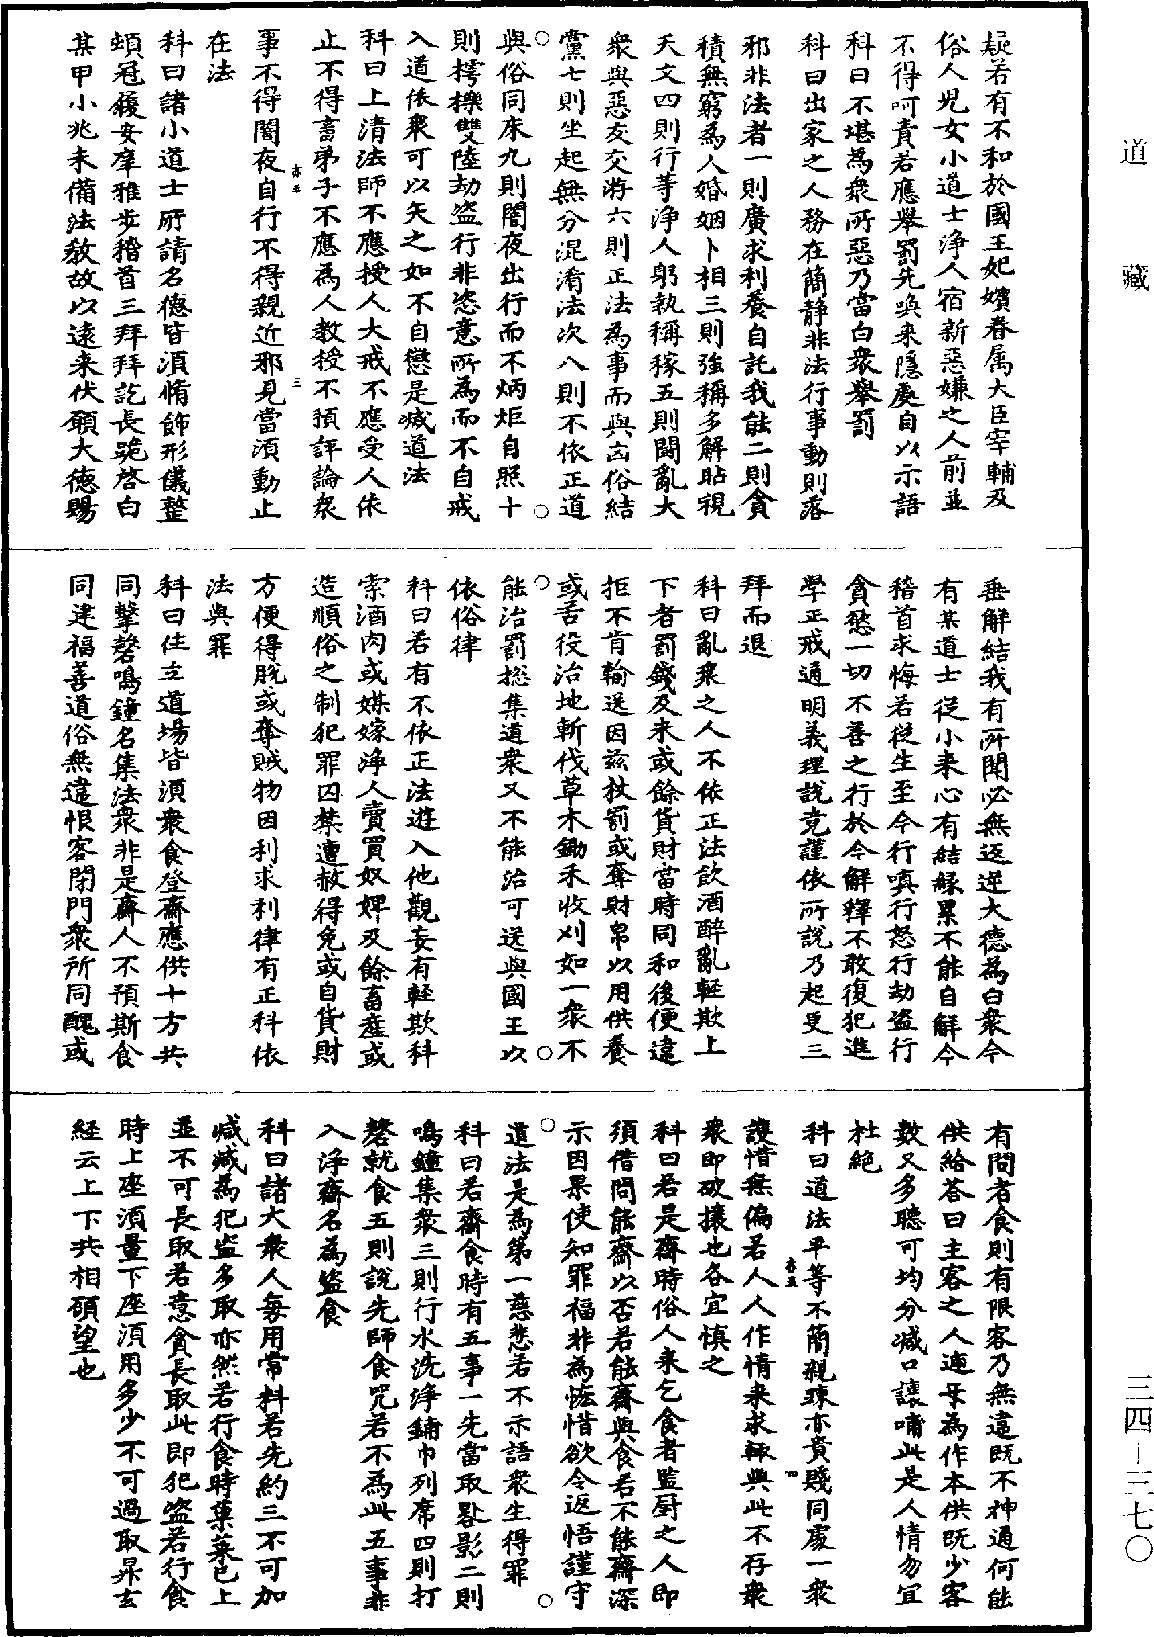 道藏
疑若有不和於國王妃嬪眷属大臣宰輔及
俗人児女小道士淨人宿新惡嫌之人前並
不得呵責若應舉罰先喚来隱處自以示語
科曰不堪為衆所惡乃當白衆舉罰
科曰出家之人務在簡静非法行事動則落
邪非法者一則廣求利養自託我能二則貪
積無窮為人婚姻卜相三則強稱多解貼視
天文四則行等淨人躬執稱稼五則鬪亂大
衆與惡友交游六則正法為事而與凶俗結
黨七則坐起無分混淆法次八則不依正道
與俗同床九則闇夜出行而不炳炬自照十
則樗摴雙陸劫盗行非恣意所為而不自戒
入道依衆可以矢之如不自懲是滅道法
科曰上清法師不應授人大戒不應受人依
止不得畜弟子不應為人教授不預評論衆
事不得闇夜自行不得親近邪見當湏動止
亦五
三
在法
科曰諸小道士所請名德皆湏脩飾形儀整
頓冠履安庠雅步稽首三拜拜訖長跪啓白
某甲小兆未備法教故以遠来伏願大德賜
垂解結我有所聞必無返逆大德為白衆今
有某道士從小来心有結縁累不能自解今
稽首求悔若從生至今行嗔行怒行劫盗行
貪慾一切不善之行於今解釋不敢復犯進
學正戒通明義理說竟謹依所說乃起更三
拜而退
科曰亂衆之人不依正法飲酒醉亂輕欺上
下者罰錢及米或餘貨財當時同和後便違
拒不肯輸送因兹杖罰或奪財帛以用供養
或苦役治地斬伐草木鋤禾收刈如一衆不
能治罰捴集道衆又不能治可送與國王以
依俗律
科曰若有不依正法遊入他觀妄有輕欺科
索酒肉或媒嫁淨人賣買奴婢及餘畜産或
造順俗之制犯罪囚禁遭赦得免或自貨財
方便得脫或奪賊物因利求利律有正科依
法與罪
科曰住立道場皆湏衆食登齋應供十方共
同擊磬鳴鐘名集法衆非是齋人不預斯食
同建福善道俗無違恨客閉門衆所同醜或
有問者食則有限客乃無遠既不神通何能
供給答曰主客之人連牙為作本供既少客
數又多聽可均分減口讓哺此是人情勿宜
杜絶
科曰道法平等不簡親踈亦貴賤同處一衆
亦五
四
護惜無偏若人人作情来求輙與此不存衆
衆即破攘也各宜慎之
科曰若是齋時俗人来乞食者監厨之人即
須借問能齋以否若能齋與食若不能齋深
示因果使知罪福非為恡惜欲令返悟謹守
道法是為第一慈悲若不示語衆生得罪
科曰若齋食時有五事一先當取晷影二則
鳴鐘集衆三則行水洗淨鋪巾列席四則打
磬就食五則說先師食咒若不為此五事非
入淨齋名為盗食
科曰諸大衆人每用常料若先約三不可加
減減為犯盗多取亦然若行食時菓菜已上
並不可長取若意貪長取此即犯盗若行食
時上座湏量下座湏用多少不可過取昇玄
経云上下共相顧望也
三四—三七〇